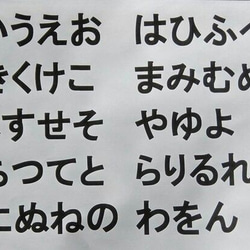 うえお はひふ
くけこ まみむ
すせそ やゆよ
つてと らりるれ
ぬねの わをん